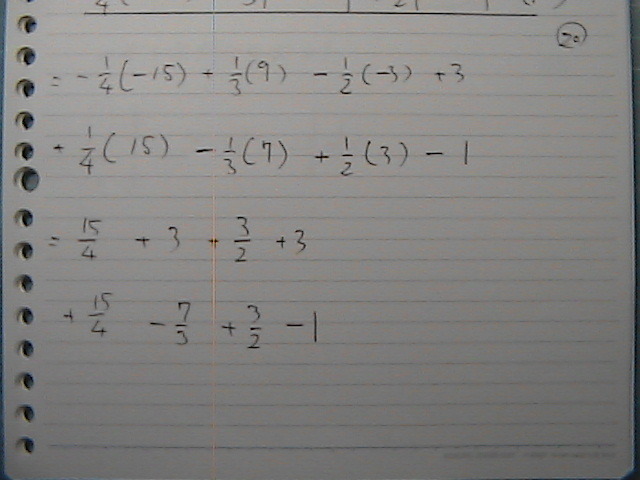 20
= -1/4(-15) + 1/3(9) - 1/2(-3) + 3
+ 1/4(15) - 1/3(7) + 1/2(3) - 1
= 15/4 + 3 + 3/2 + 3
+ 15/4 - 7/3 + 3/2 - 1